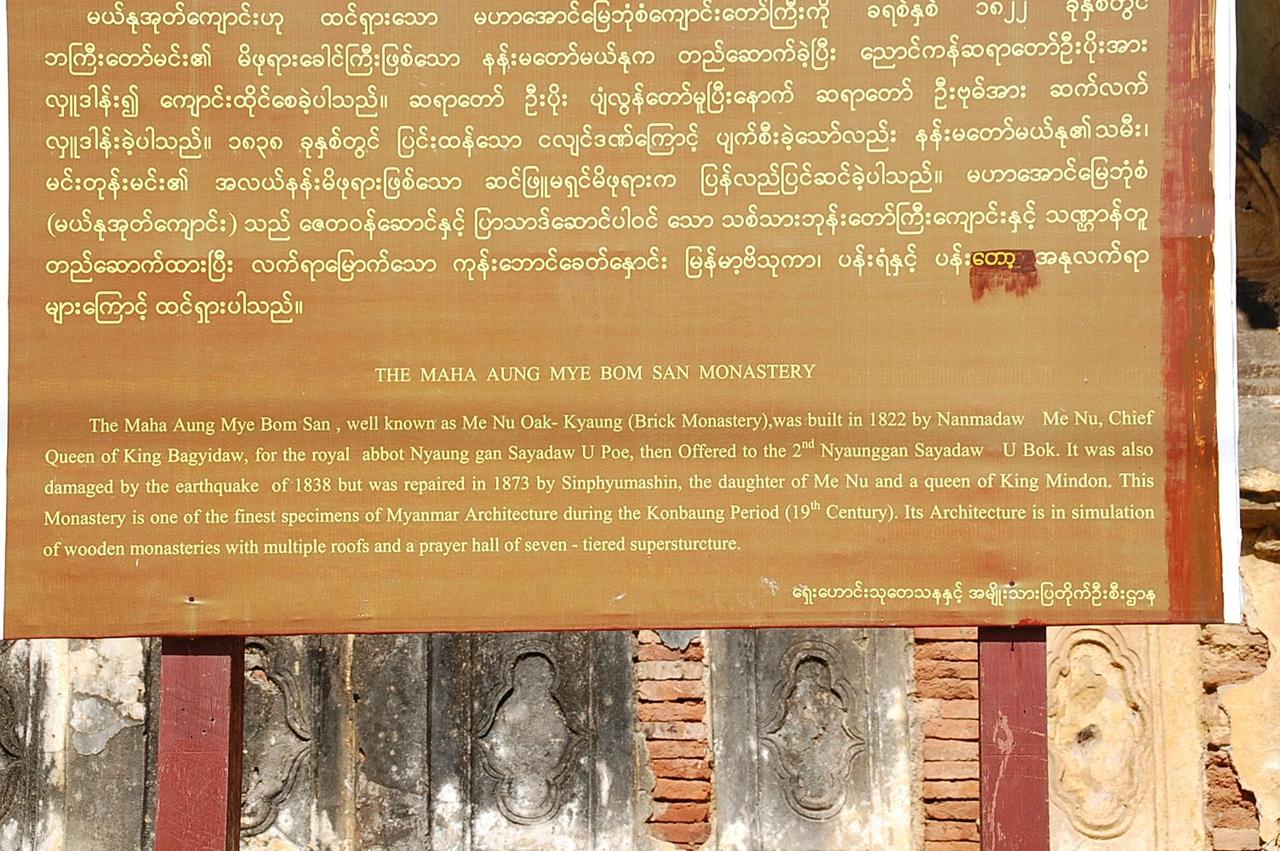 မယ်နုအုတ်ကျောင်းဟု ထင်ရှားသော မဟာအောင်မြေဘုံစံကျောင်းတော်ကြီးကို ခရစ်နှစ် ၁၈၂၂ ခုနှစ်တွင်
ဘကြီးတော်မင်း၏ မိဖုရားခေါင်ကြီးဖြစ်သော နန်းမတော်မယ်နုက တည်ဆောက်ခဲ့ပြီး ညောင်ကန်ဆရာတော်ဦးပိုးအား
လှူဒါန်း၍ ကျောင်းထိုင်စေခဲ့ပါသည်။ ဆရာတော် ဦးပိုး ပျံလွန်တော်မူပြီးနောက် ဆရာတော် ဦးဗုဓ်အား ဆက်လက်
လှူဒါန်းခဲ့ပါသည်။ ၁၈၃၈ ခုနှစ်တွင် ပြင်းထန်သော ငလျင်ဒဏ်ကြောင့် ပျက်စီးခဲ့သော်လည်း နန်းမတော်မယ်နု၏သမီး၊
မင်းတုန်းမင်း၏ အလယ်နန်းမိဖုရားဖြစ်သော ဆင်ဖြူမရှင်မိဖုရားက ပြန်လည်ပြင်ဆင်ခဲ့ပါသည်။ မဟာအောင်မြေဘုံစံ
(မယ်နုအုတ်ကျောင်း) သည် ဇေတဝန်ဆောင်နှင့် ပြာသာဒ်ဆောင်ပါဝင် သော သစ်သားဘုန်းတော်ကြီးကျောင်းနှင့် သဏ္ဌာန်တူ
တည်ဆောက်ထားပြီး လက်ရာမြောက်သော ကုန်းဘောင်ခေတ်နှောင်း မြန်မာ့ဗိသုကာ၊ ပန်းရံနှင့် ပန်းတော့ အနုလက်ရာ
များကြောင့် ထင်ရှားပါသည်။
THE MAHA AUNG MYE BOM SAN MONASTERY
The Maha Aung Mye Bom San , well known as Me Nu Oak- Kyaung (Brick Monastery),was built in 1822 by Nanmadaw Me Nu, Chief
Queen of King Bagyidaw, for the royal abbot Nyaung gan Sayadaw U Poe, then Offered to the 2nd Nyaunggan Sayadaw U Bok. It was also
damaged by the earthquake of 1838 but was repaired in 1873 by Sinphyumashin, the daughter of Me Nu and a queen of King Mindon. This
Monastery is one of the finest specimens of Myanmar Architecture during the Konbaung Period (19th Century). Its Architecture is in simulation
of wooden monasteries with multiple roofs and a prayer hall of seven - tiered supersturcture.
ရှေးဟောင်းသုတေသနနှင့် အမျိုးသားပြတိုက်ဦးစီးဌာန